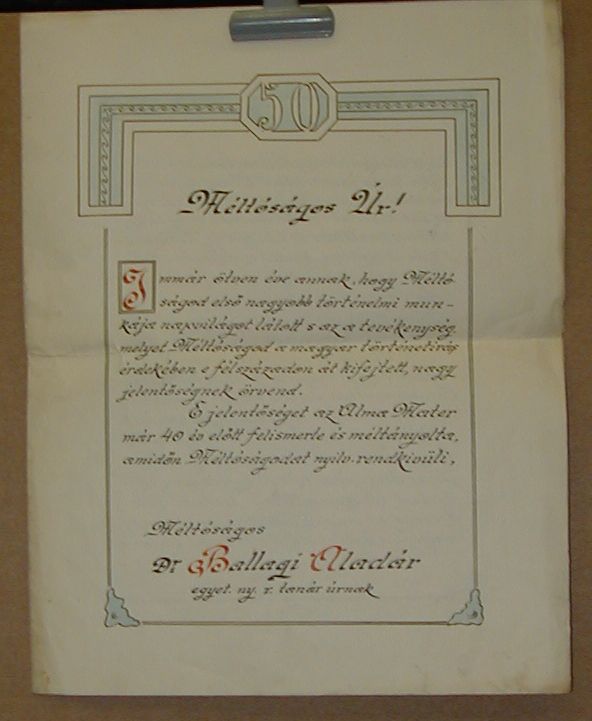 50
Méltóságos Úr!
Immár ötven éve annak, hogy Méltó
ságod első nagyobb történelmi mun-
kája napvilágot látott s az a tevékenység,
melyet Méltóságod a magyar történetírás
érdekében e félszázadon át kifejtett, nagy
jelentőségnek örvend.
E jelentőséget az Alma Mater
már 40 év előtt felismerte és méltányolta,
amidőn Méltóságodat nyilv. rendkívüli,
Méltóságos
Dr Ballagi Aladár
egyet. ny. r. tanár úrnak